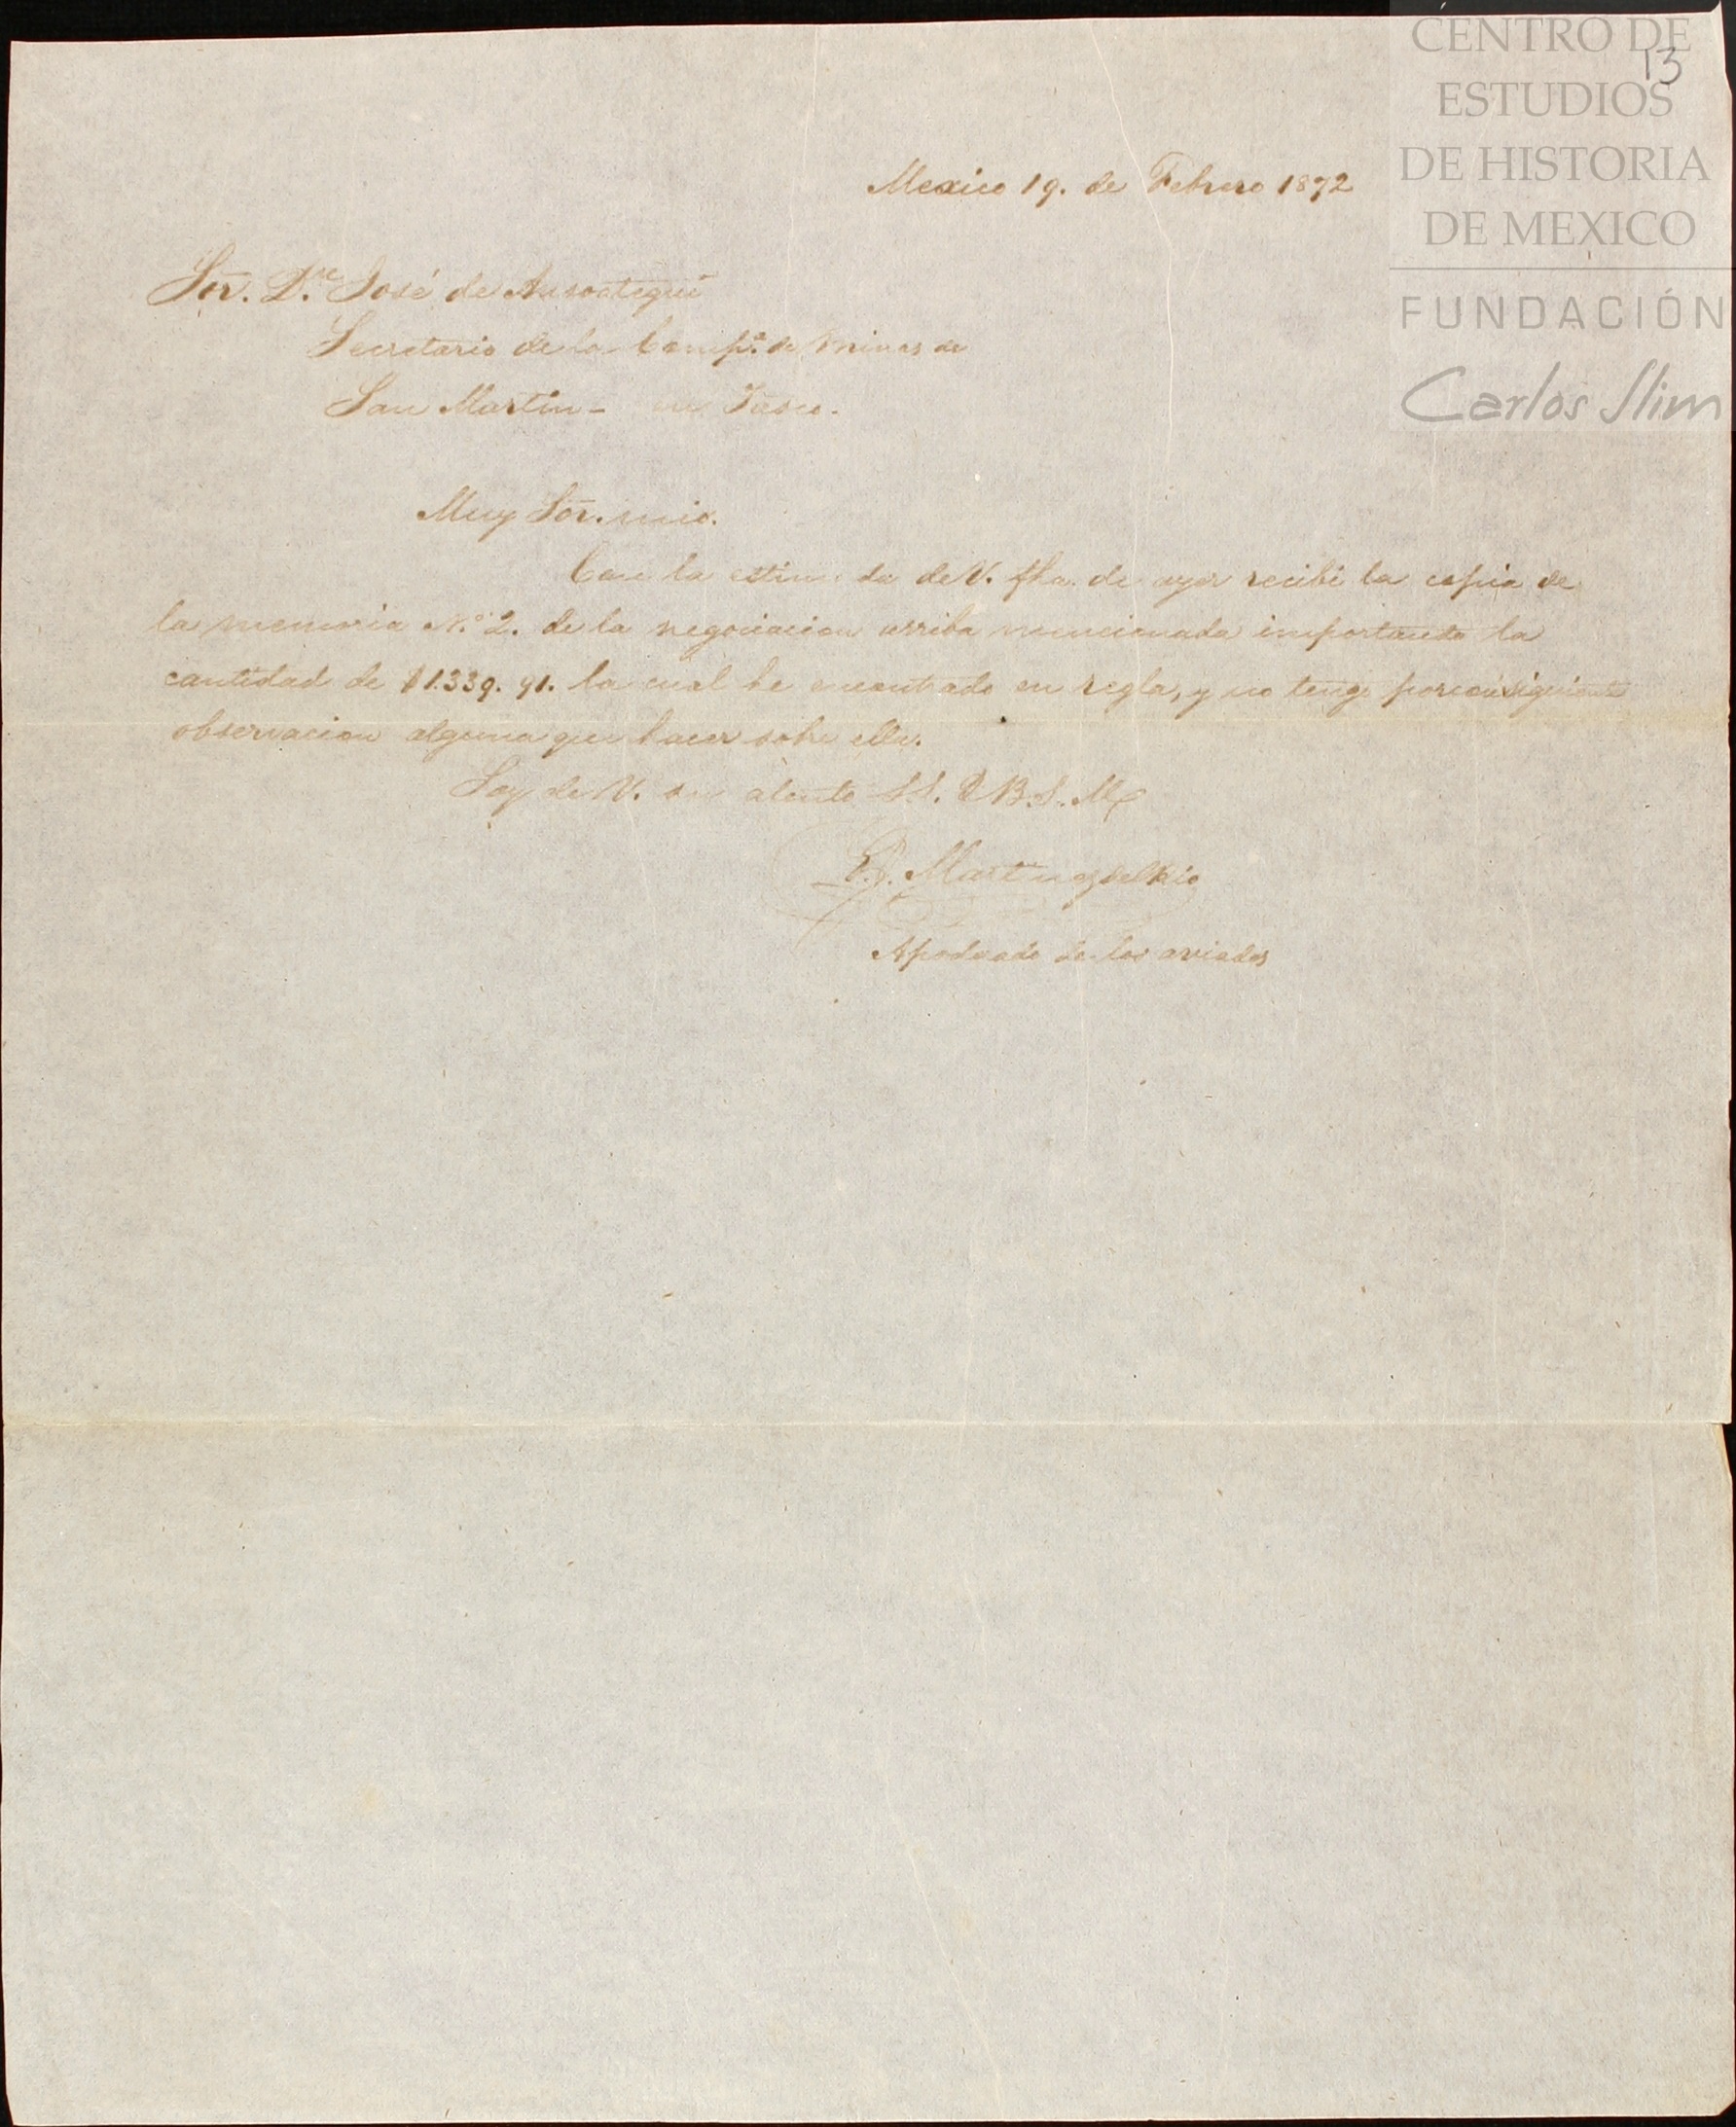 CENTRO DE
13
ESTUDIOS
DE HISTORIA
DE MEXICO
FUNDACIÓN
Carlos Slim
Mexico 19. de Febrero 1872
Sor. Dn. José de Ansoategui
Secretario de la Compa. de Minas de
San Martin - en Tasco.
Muy Sor. mio.
Con la estimada de V. fha. de ayer recibi la copia de
la memoria No. 2. de la negociacion arriba mencionada importando la
cantidad de $1.339. 91. la cual he encontrado en regla, y no tengo por consiguiente
observacion alguna que hacer sobre ella.
Soy de V. su atento S.S. Q B.S.M.
P. Martinez del Rio
Apoderado de los aviados